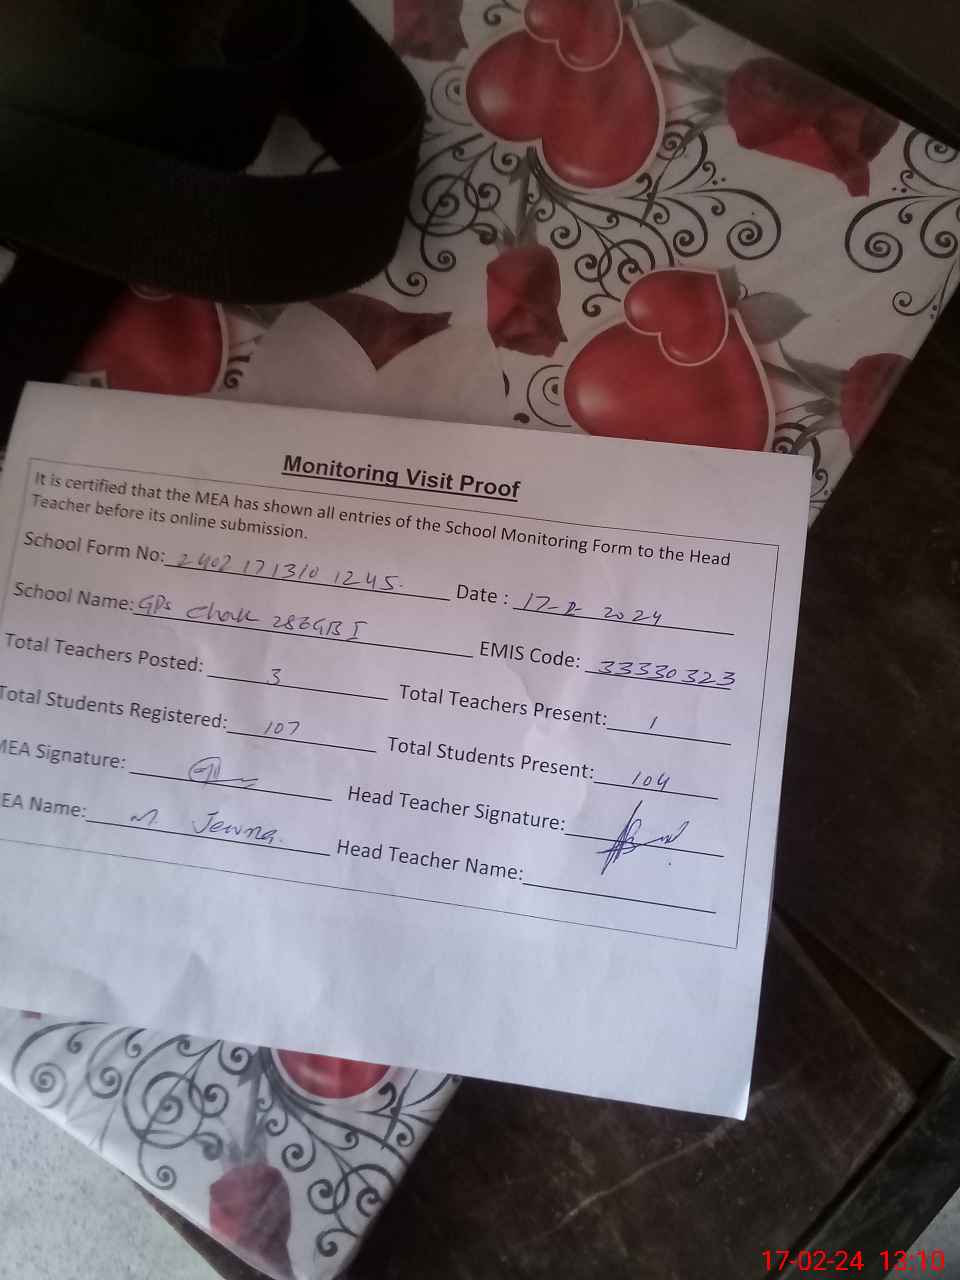 Monitoring Visit Proof
It is certified that the MEA has shown all entries of the School Monitoring Form to the Head
Teacher before its online submission.
School Form No: 2402 171310 1245. Date : 17-2- 2024
School Name: GPS Chak 283GB I EMIS Code: 33330323
Total Teachers Posted: 3 Total Teachers Present: 1
Total Students Registered: 107 Total Students Present: 104
MEA Signature: Head Teacher Signature:
EA Name: M. Head Teacher Name:
17-02-24 13:10